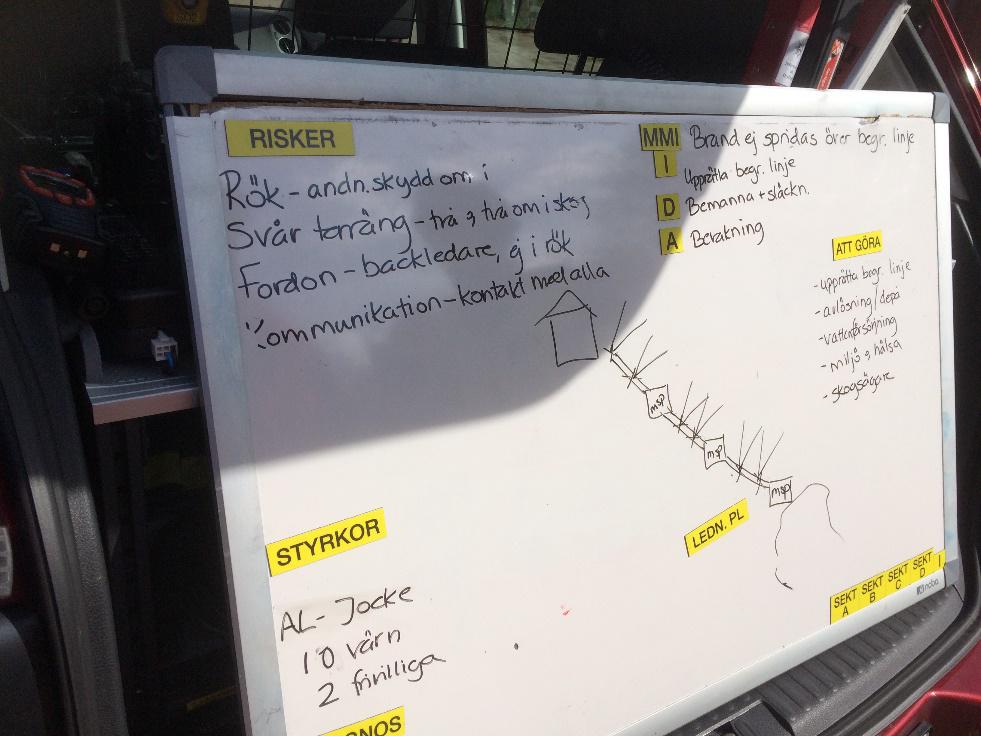 RISKER
Rök - andn.skydd om i
Svår terräng - två & två om i skog
Fordon - backledare, ej i rök
Kommunikation - kontakt med alla
MMI Brand ej spridas över begr. linje
I Upprätta begr. linje
D Bemanna + släckn.
A Bevakning
ATT GÖRA
- upprätta begr. linje
- avlösning/depå
- vattenförsörjning
- miljö & hälsa
- skogsägare
msp
msp
msp
LEDN. PL
STYRKOR
AL - Jocke
10 värn
2 frivilliga
SEKT A SEKT B SEKT C SEKT D I
nobo
NOS